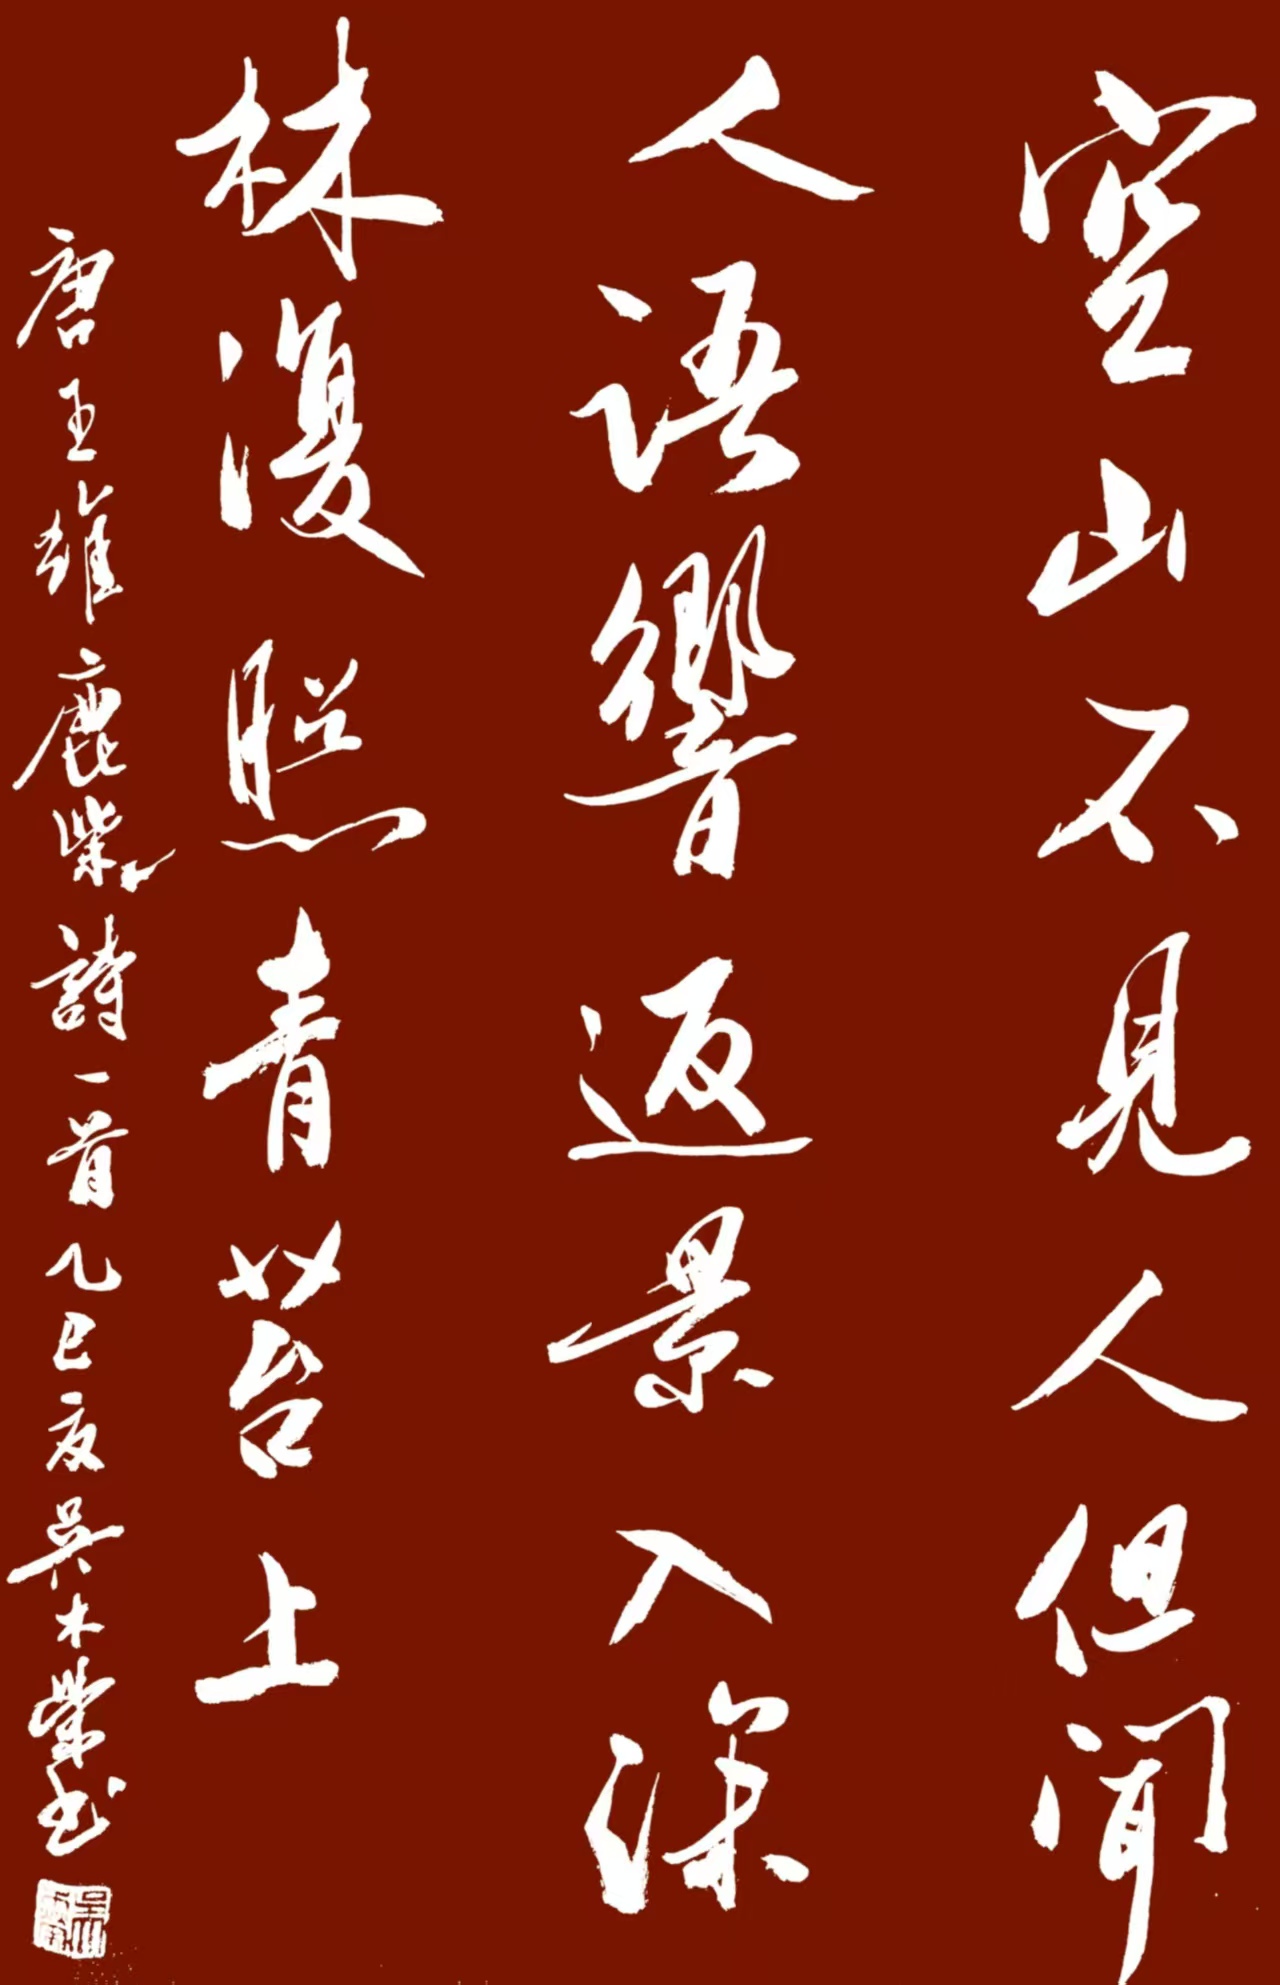 空山不見人但聞
人语響返景入深
林復照青苔上
唐王維鹿柴詩一首乙巳夏吴木荣书